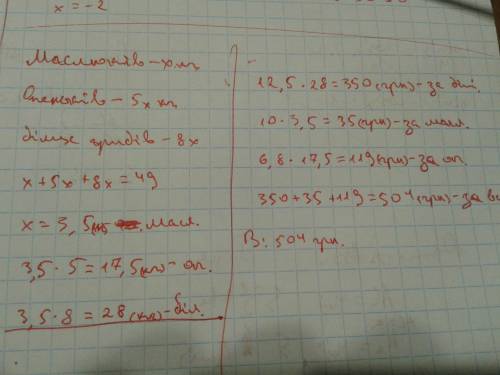 x = -2
Маслюків - x кг
Опеньків - 5x кг
Білих грибів - 8x
x + 5x + 8x = 49
x = 3,5(кг) масл.
3,5 · 5 = 17,5(кг) - оп.
3,5 · 8 = 28(кг) - біл.
12,5 · 28 = 350(грн) - за білі.
10 · 3,5 = 35(грн) - за масл.
6,8 · 17,5 = 119(грн) - за оп.
350 + 35 + 119 = 504(грн) - за вс
В: 504 грн.